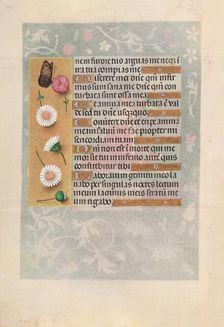 ne in furore tuo arguas me neq; i
ira tua corripias me
Miserere mei dñe qm̄ infir
mus sum sana me dñe qm̄ con
turbata sunt ossa mea
Et anima mea turbata ē val
de sed tu dñe usquequo
Convertere dñe et eripe ani
mam meam salvum me fac propter mi
sericordiam tuam
Qm̄ non est in morte qui me
mor sit tui in inferno autē quis
confitebitur tibi
Laboravi in gemitu meo la
vabo per singulas noctes lectum
meum lacrimis meis stratū me
um rigabo